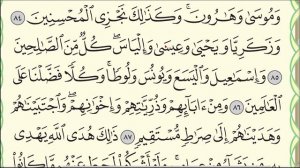 وَمُوسَىٰ وَهَٰرُونَ ۚ وَكَذَٰلِكَ نَجْزِى ٱلْمُحْسِنِينَ ٨٤
وَزَكَرِيَّا وَيَحْيَىٰ وَعِيسَىٰ وَإِلْيَاسَ ۖ كُلٌّ مِّنَ ٱلصَّٰلِحِينَ
٨٥ وَإِسْمَٰعِيلَ وَٱلْيَسَعَ وَيُونُسَ وَلُوطًا ۚ وَكُلًّا فَضَّلْنَا عَلَى
ٱلْعَٰلَمِينَ ٨٦ وَمِنْ ءَابَآئِهِمْ وَذُرِّيَّٰتِهِمْ وَإِخْوَٰنِهِمْ ۖ وَٱجْتَبَيْنَٰهُمْ
وَهَدَيْنَٰهُمْ إِلَىٰ صِرَٰطٍ مُّسْتَقِيمٍ ٨٧ ذَٰلِكَ هُدَى ٱللَّهِ يَهْدِى